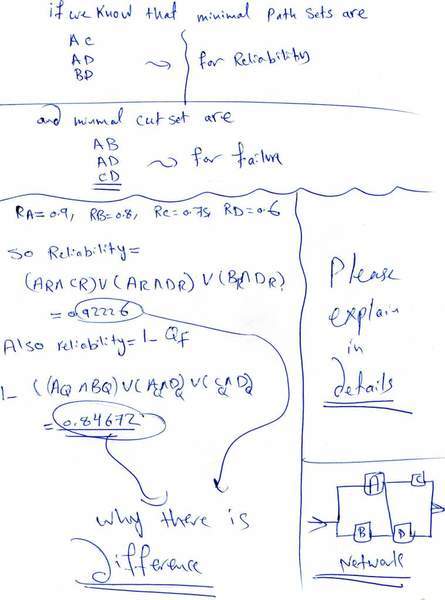 if we know that minimal path sets are
AC
AD
BD
for Reliability
and minimal cut set are
AB
AD
CD
for failure
RA=0.9, RB=0.8, RC=0.75, RD=0.6
so Reliability=
(AR∩CR)∨(AR∩DR)∨(BR∩DR)
=0.92226
Also reliability=1-QF
1-((AQ∩BQ)∨(AQ∩DQ)∨(CQ∩DQ)
=0.84672
why there is
difference
Please
explain
in
details
A
C
B
D
Network